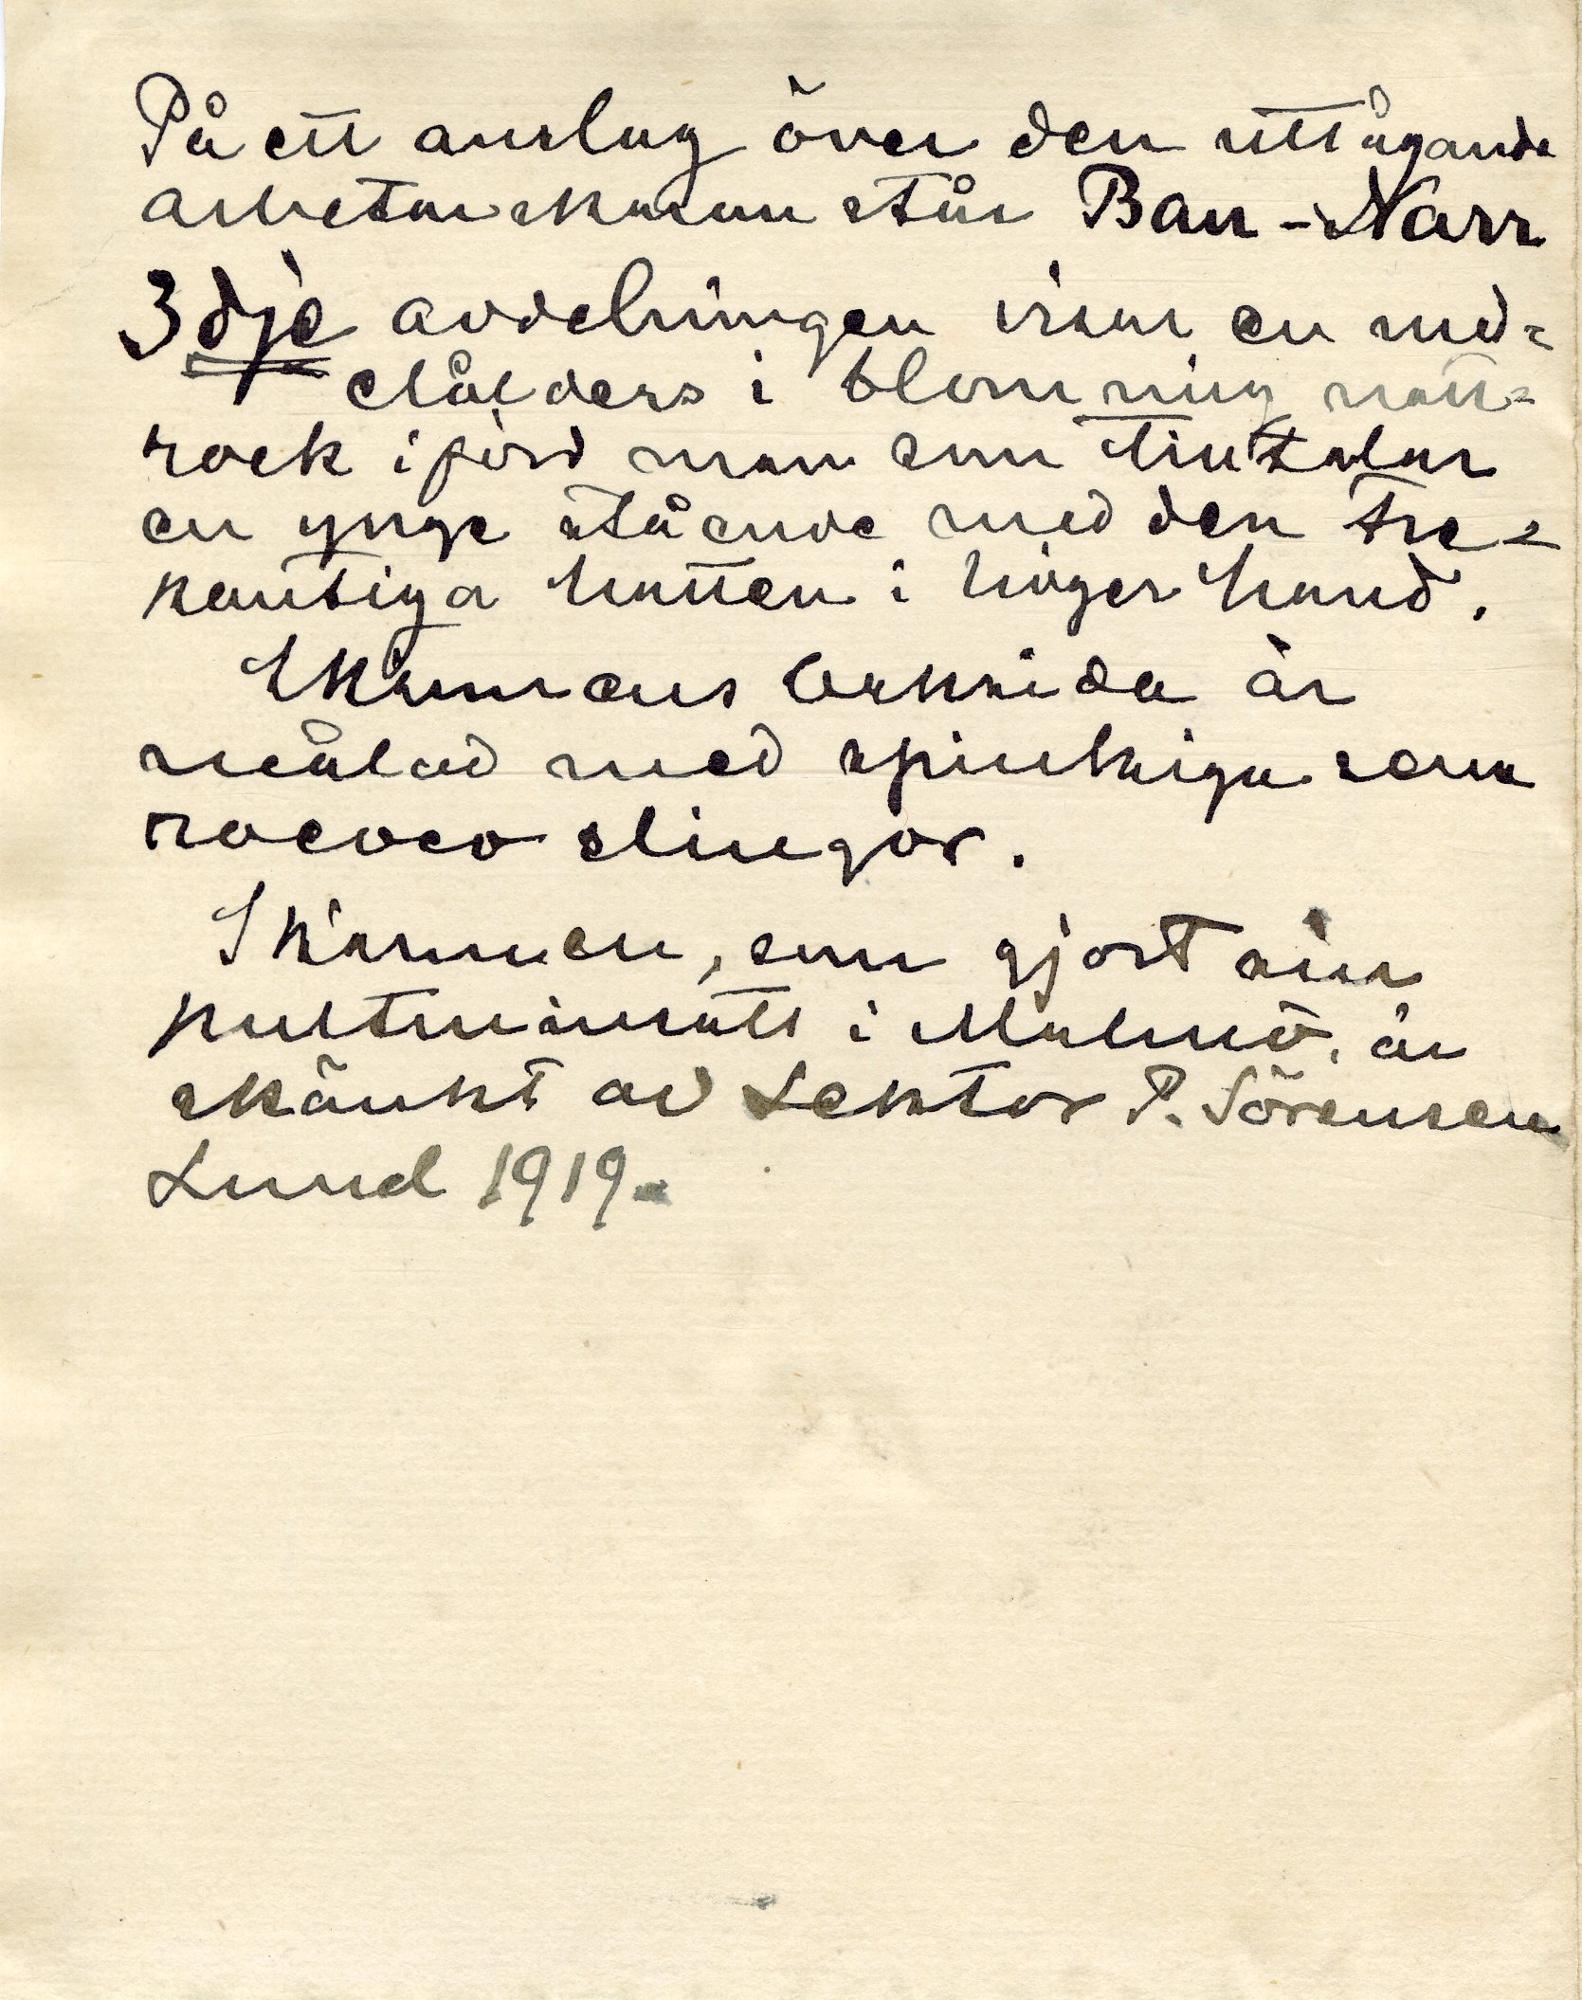 På ett anslag över den uttågande
arbetarskaran står Bau-Narr
3dje avdelningen visar en med=
elålders i blommig natt=
rock iförd man som tilltalar
en yngre stående med den tre=
kantiga hatten i höger hand.
Skärmens baksida är
målad med spinkiga sena
rococo slingor.
Skärmen, som gjort sin
pultmansätt i Malmö, är
skänkt av Lektor P. Sörensen
Lund 1919.